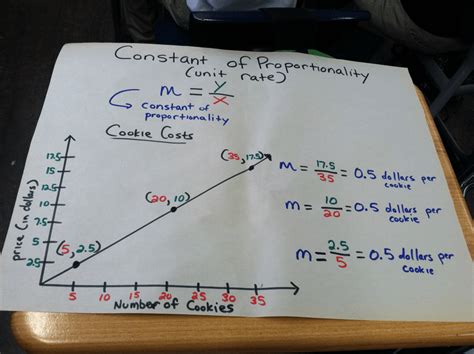 Constant of Proportionality
(unit rate)
m = y/x
constant of
proportionality
Cookie Costs
price (in dollars)
17.5
15
12.5
10
7.5
5
2.5
(5, 2.5)
(20, 10)
(35, 17.5)
5 10 15 20 25 30 35
Number of Cookies
m = 17.5/35 = 0.5 dollars per
cookie
m = 10/20 = 0.5 dollars per
cookie
m = 2.5/5 = 0.5 dollars per
cookie